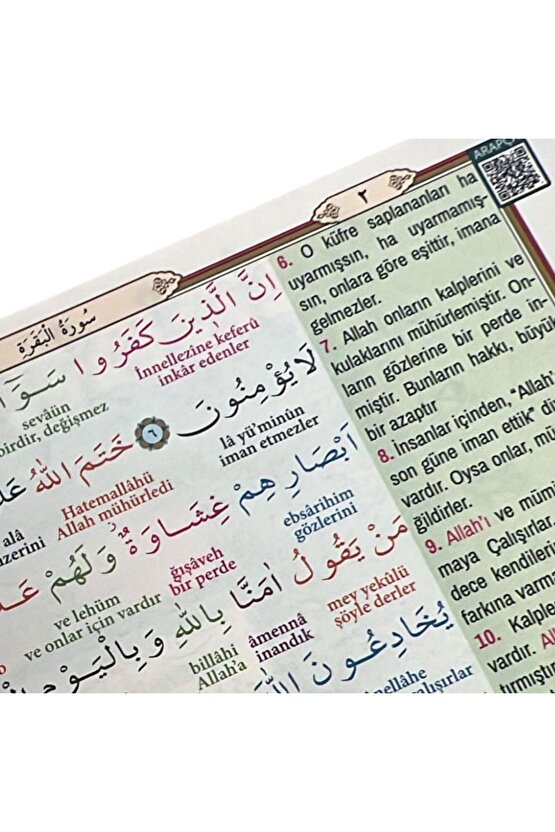 ٢
سُورَةُ الْبَقَرَةِ
اِنَّ الَّذٖينَ كَفَرُوا سَوَٓا
İnnellezine keferû
inkâr edenler
sevâün
birdir, değişmez
لَا يُؤْمِنُونَ ٦ خَتَمَ اللّٰهُ
lâ yü'minûn
iman etmezler
Hatemallâhü
Allah mühürledi
alâ
اَبْصَارِهِمْ غِشَاوَةٌ وَلَهُمْ
ebsârihim
gözlerini
ğışâveh
bir perde
ve lehüm
ve onlar için vardır
مَنْ يَقُولُ اٰمَنَّا بِاللّٰهِ وَبِالْيَوْمِ
mey yekülü
şöyle derler
âmennâ
inandık
billâhi
Allah'a
يُخَادِعُونَ اللّٰهَ
6. O küfre saplananları ha
uyarmışsın, ha uyarmamış-
sın, onlara göre eşittir, imana
gelmezler.
7. Allah onların kalplerini ve
kulaklarını mühürlemiştir. On-
ların gözlerine bir perde in-
miştir. Bunların hakkı, büyü
bir azaptır
8. İnsanlar içinden, "Allah
son güne iman ettik" di
vardır. Oysa onlar, mü
ğildirler.
9. Allah'ı ve müm
maya Çalışırlar
dece kendileri
farkına varm
10. Kalple
vardır. Al
tırmıştı